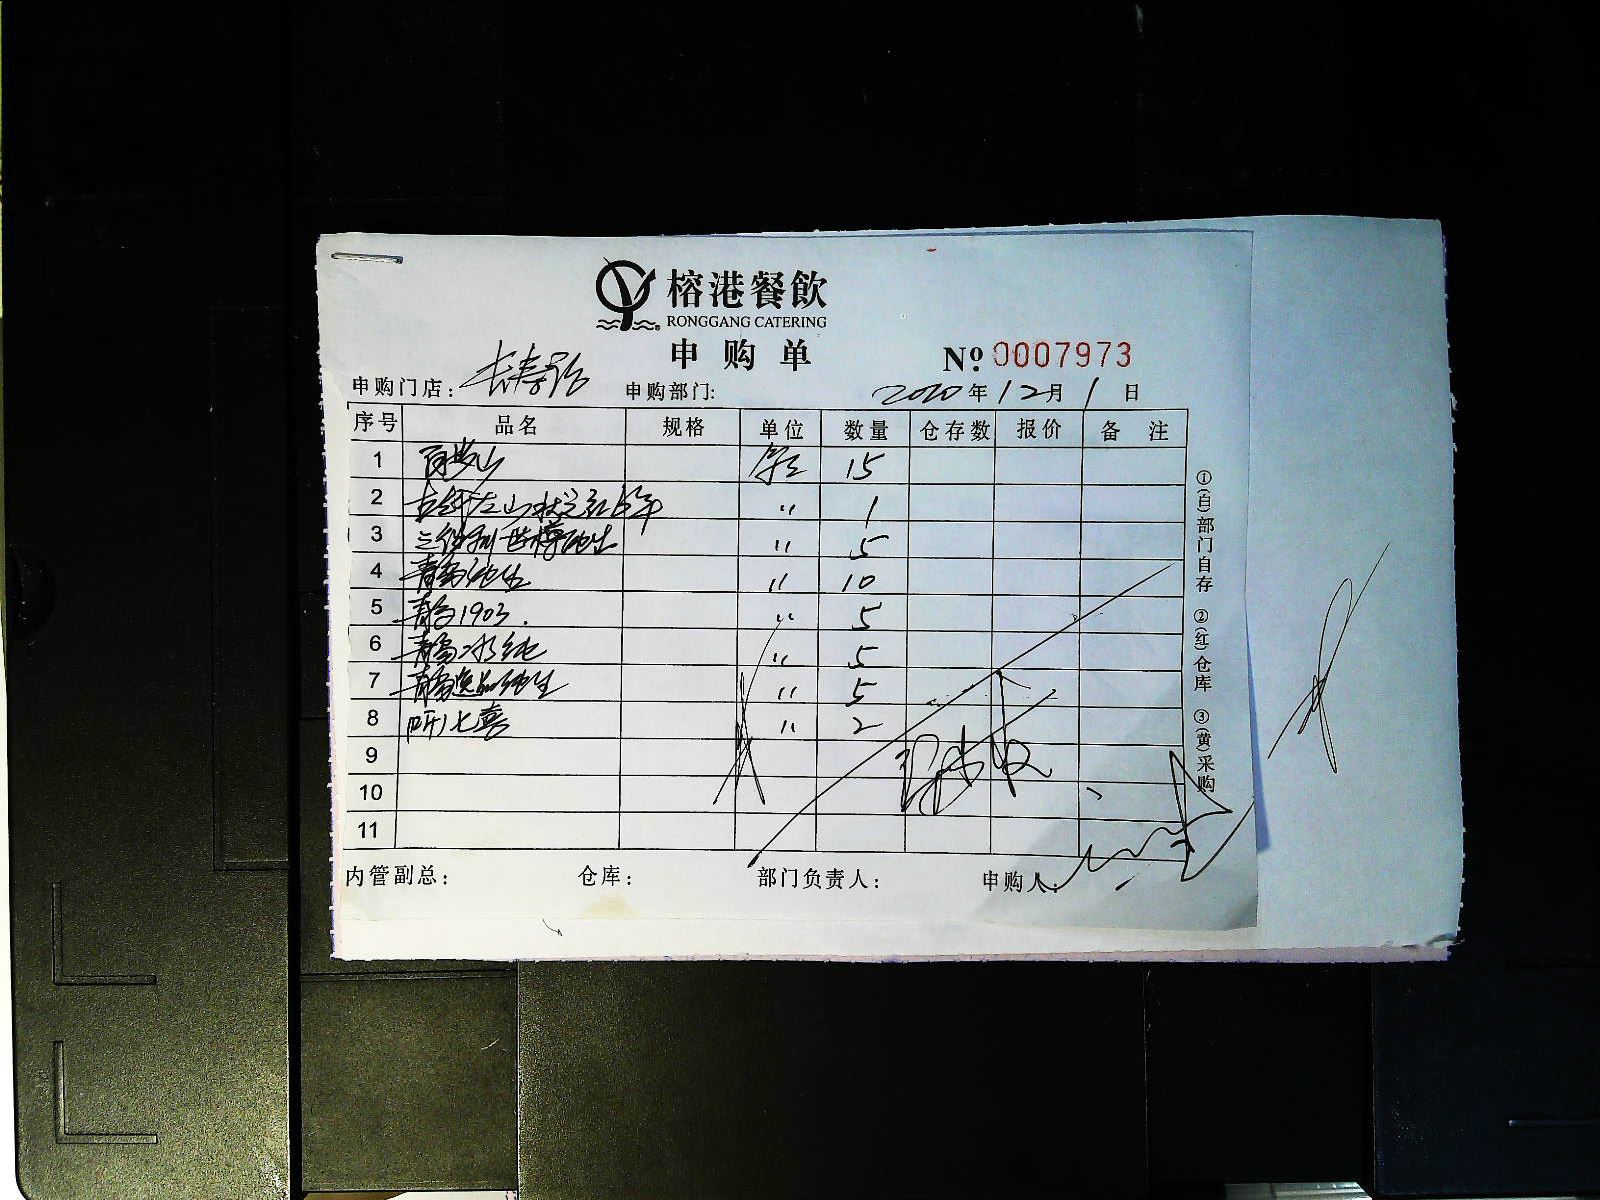 榕港餐飲
RONGGANG CATERING
申购单
№ 0007973
申购门店: 长寿路 申购部门: 2020年12月1日
序号 品名 规格 单位 数量 仓存数 报价 备注
1 百岁山 箱 15
2 古越龙山状元红6年 〃 1
3 三得利 纯生 〃 5
4 青岛纯生 〃 10
5 青岛1903. 〃 5
6 青岛冰纯 〃 5
7 青岛逸品纯生 〃 5
8 听七喜 〃 2
9
10
11
内管副总: 仓库: 部门负责人: 申购人:
①(白)部门自存 ②(红)仓库 ③(黄)采购